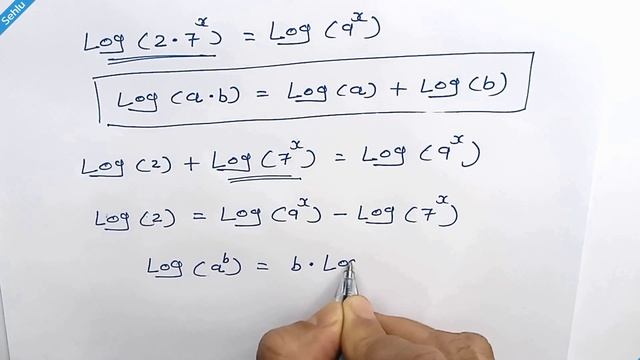 Sehlu
Log (2 · 7^x) = Log (9^x)
Log (a · b) = Log (a) + Log (b)
Log (2) + Log (7^x) = Log (9^x)
Log (2) = Log (9^x) – Log (7^x)
Log (a^b) = b · Log